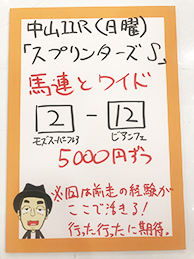 中山11R(日曜)
「スプリンターズS」
馬連とワイド
2 - 12
モズスーパーフレア ビアンフェ
5000円ずつ
※②は前走の経験が
ここで活きる!
行った行ったに期待。